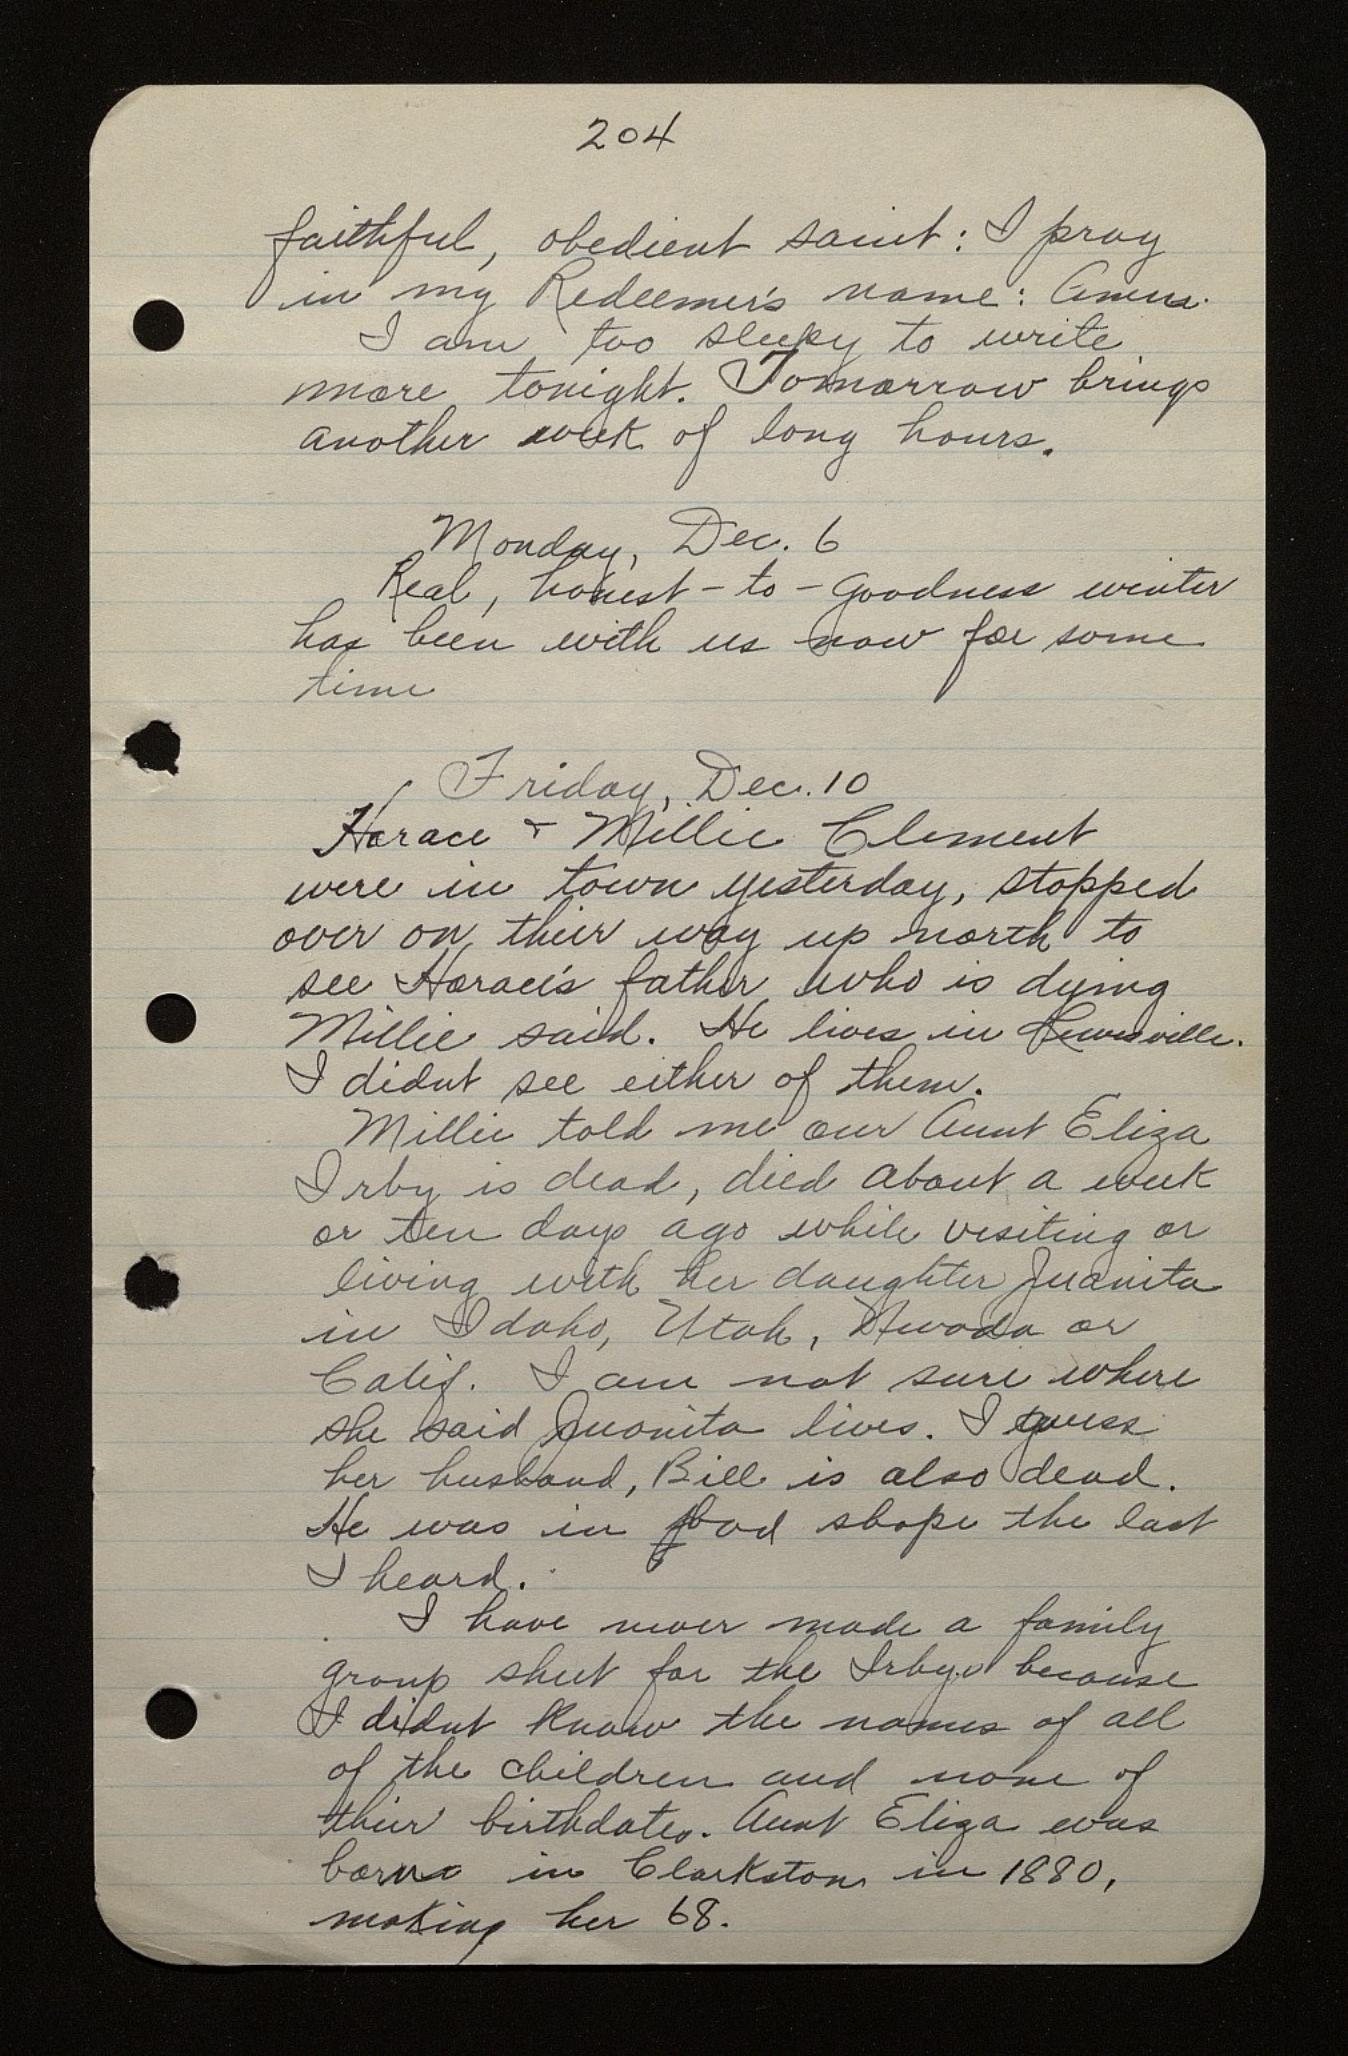 204
faithful, obedient saint: I pray
in my Redeemer's name: Amen.
I am too sleepy to write
more tonight. Tomorrow brings
another week of long hours.
Monday, Dec. 6
Real, honest-to-goodness winter
has been with us now for some
time
Friday, Dec. 10
Horace & Millie Clement
were in town yesterday, stopped
over on their way up north to
see Horace's father who is dying
Millie said. He lives in Lewisville.
I didnt see either of them.
Millie told me our Aunt Eliza
Irby is dead, died about a week
or ten days ago while visiting or
living with her daughter Juanita
in Idaho, Utah, Nevada or
Calif. I am not sure where
she said Juanita lives. I guess
her husband, Bill is also dead.
He was in bad shape the last
I heard.
I have never made a family
group sheet for the Irbys because
I didnt know the names of all
of the children and none of
their birthdates. Aunt Eliza was
born in Clarkston in 1880,
making her 68.